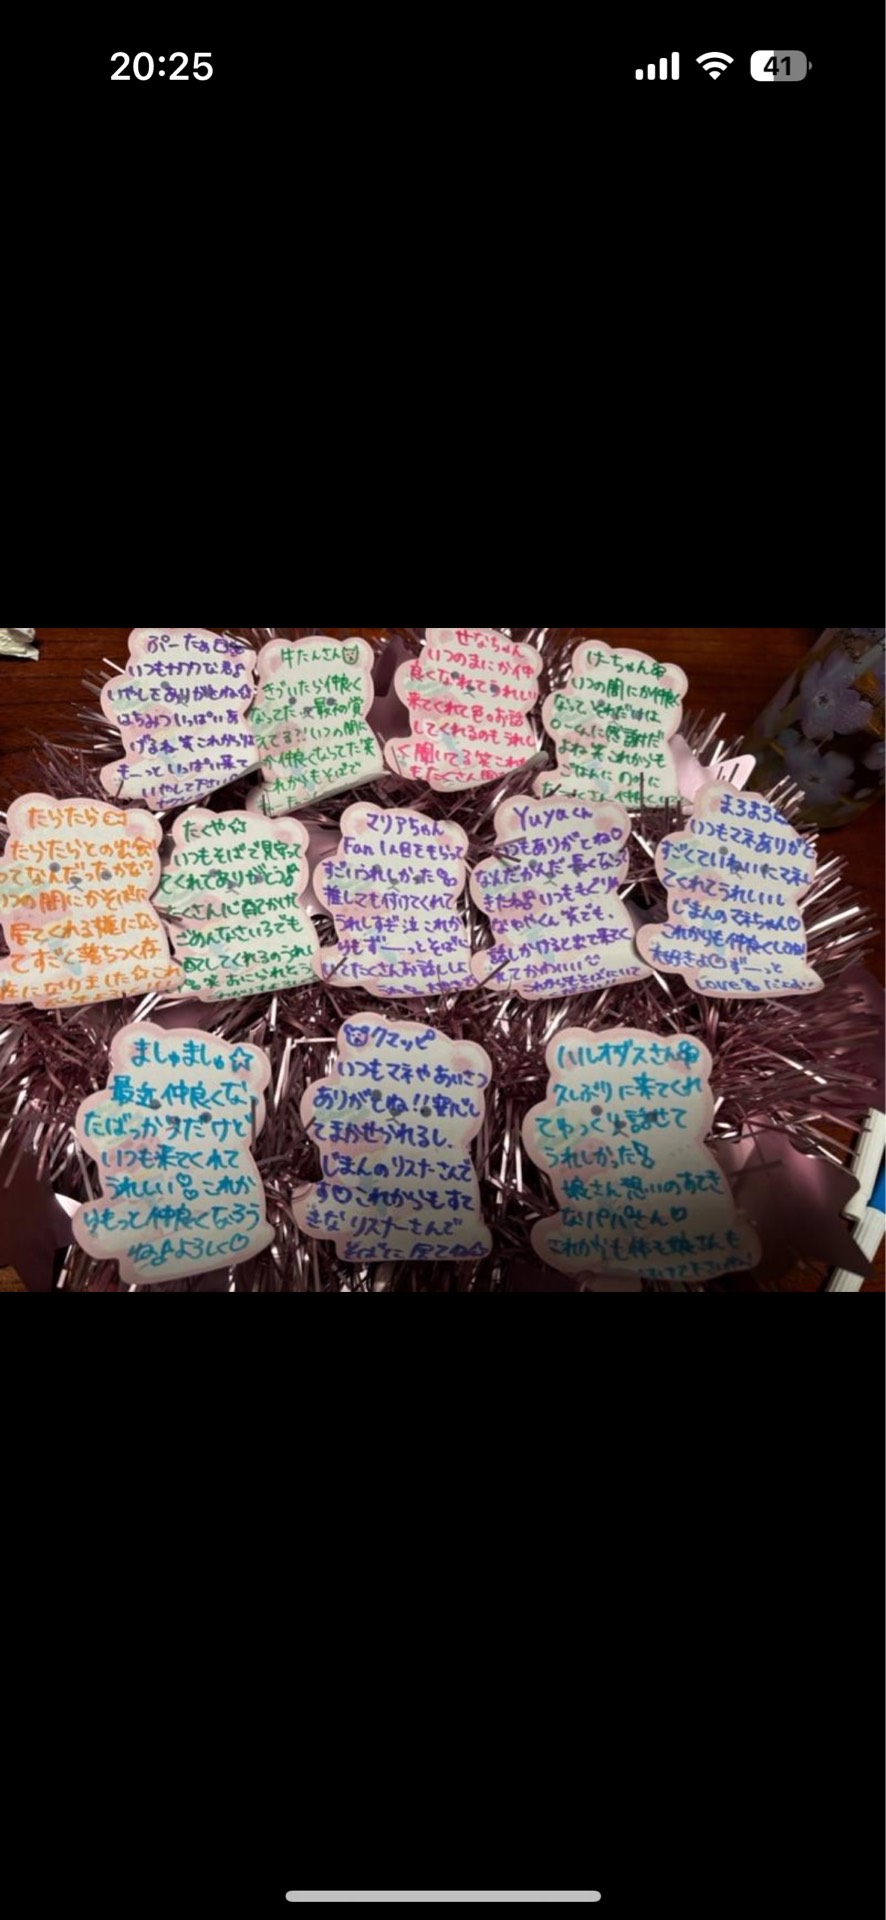 20:25
41
ぷーたぁ
いつもナイスな君♪
いやしてありがとね☆
はちみついっぱいあ
げるね 笑 これからは
もーっといっぱい来て
いやして下さい
牛たんさん
きづいたら仲良く
なってた 最初の覚
えてる?!いつの間に
か仲良くなってた笑
これからもそばで
せなちゃん
いつのまにか仲
良くなれてうれしい
来てくれて色々お話
してくれるのもうれし
く聞いてる笑これ
もたくさん
けーちゃん
いつの間にか仲良く
なって それだけは
くんに感謝だ
よね 笑 これからも
ごはんに
たくさん仲良く
たらたら
たらたらとの出会
ってなんだったかな?
いつの間にかそばに
居てくれる様になっ
てすごく落ちつく存
在になりました☆これ
たくや☆
いつもそばで見守っ
てくれてありがとう
たくさん心配かけて
ごめんなさいろでも
配してくれるのうれし
笑 おこられとう
マリアちゃん
Fan 1人目をもらって
すごいうれしかった
推しても付けてくれて
うれしすぎ 泣 これか
らもずーっとそばに
いてたくさんお話しよ
Yuyaくん
いつもありがとね♡
なんだかんだ長くなって
きたね いつももぐり
なゆやくん 笑でも、
話しかけると出て来てく
れてかわいい
これからもそばにいて
まろまろ
いつもマネありがと
すごくていねいにマネし
てくれてうれしいし
じまんのマネちゃん♡
これからも仲良くしてね
大好きよ♡ずーっと
Love
ましゅましゅ☆
最近仲良くなっ
たばっかりだけど
いつも来てくれて
うれしい これか
らもっと仲良くなろう
ね♪よろしく♡
クマッピ
いつもマネやあいさつ
ありがとね!!安心し
てまかせられるし、
じまんのリスナーさんで
す♡これからもすて
きなリスナーさんで
そばに居てね☆
ハルオダスさん
久しぶりに来てくれ
てゆっくり話せて
うれしかった
娘さん想いのすてき
なパパさん♡
これからも 娘さんも